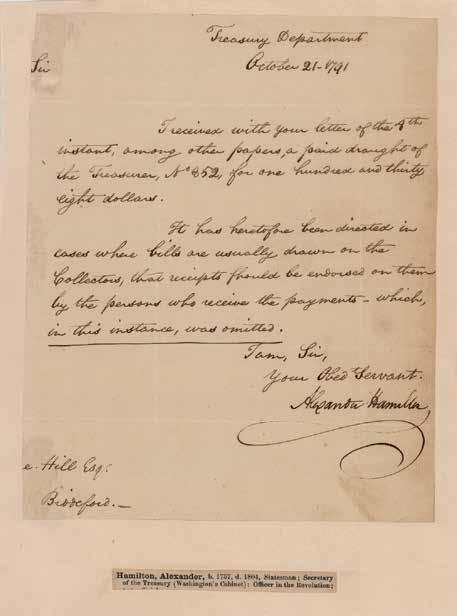 Treasury Department
October 21-1791
Sir
I received with your letter of the 4th
instant, among other papers, a paid draught of
the Treasurer, No 852, for one hundred and thirty
eight dollars.
It has heretofore been directed in
cases where bills are usually drawn on the
Collectors, that receipts should be endorsed on them
by the persons who receive the payments - which,
in this instance, was omitted.
I am, Sir,
Your Obed Servant.
Alexander Hamilton
e. Hill Esq:
Biddeford.-
Hamilton, Alexander, b. 1757, d. 1804, Statesman; Secretary
of the Treasury (Washington's Cabinet): Officer in the Revolution;